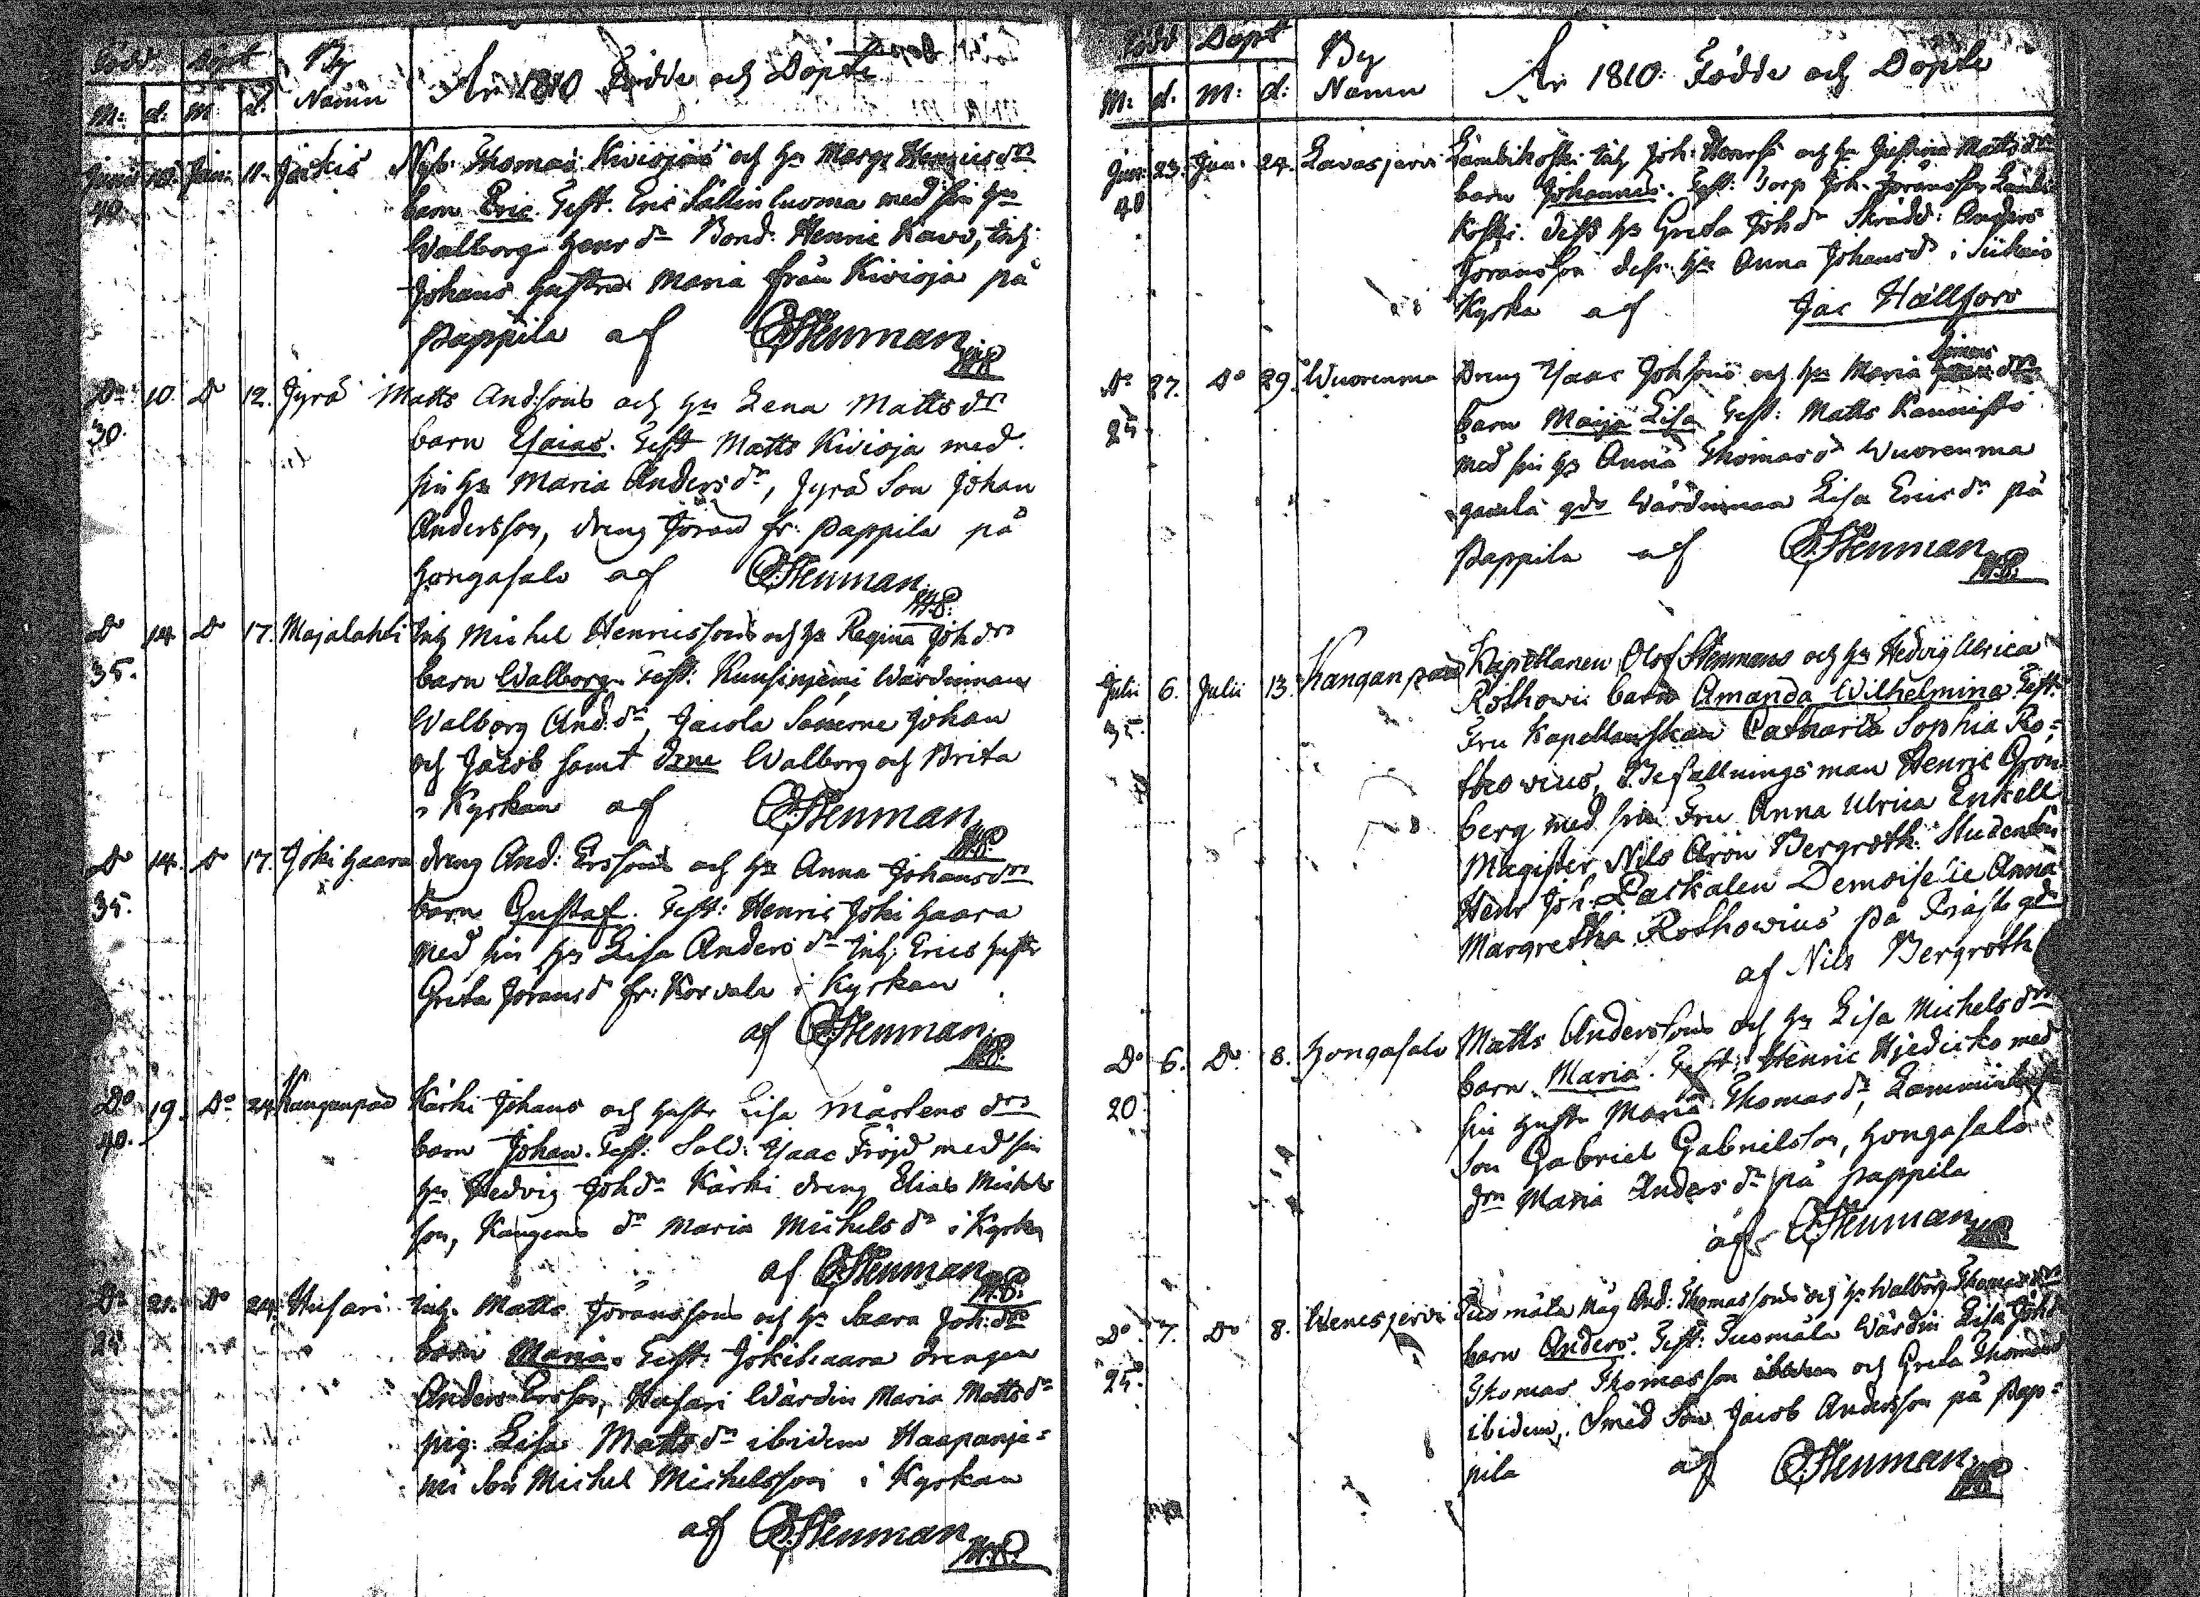 Född Döpt By
M: d: M d: Namn
År 1810 Födde och Döpte
Junii 10. Juni 11. Järkis Nyb. Thomas Kiviojas och hu Marg: Henricsdrs
40. barn Eric. Test. Eric Sällinluoma med sin hu
Walborg Henrdr Bond. Henric Kavo, Inh:
Johans hustru Maria från Kivioja på
Pappila af O. Stenman
Do 10. Do 12. Jyrä Matts And:sons och hu Lena Mattsdrs
30. barn Esaias. Test Matts Kivioja med
sin hu Maria Andersdr, Jyrä Son Johan
Andersson, dreng Jöran fr. Pappila på
Hongasalo af O. Stenman
Do 14 Do 17. Majalahti Inh Michel Henricssons och hu Regina Johdrs
35. barn Walborg. Test: Kuusiniemi Wärdinnan
Walborg And:dr, Jacola Sönerne Johan
och Jacob samt drne Walborg och Brita
i Kyrkan af O. Stenman
Do 14. Do 17. Joki haara dreng And: Erssons och hu Anna Johansdrs
35. barn Gustaf. Test: Henric Joki haara
med sin hu Lisa Andersdr Inh: Erics hustr
Greta Joransd fr: Korvala i Kyrkan
af O. Stenman
Do 19. Do 24. Kanganpää Kärki Johans och hustr Lisa Mårtensdrs
40. barn Johan. Test: Sold: Isaac Fröjd med sin
hu Hedvig Johdr Kärki dreng Elias Michels
son, Kangens dr Maria Michelsdr i Kyrkan
af O. Stenman
Do 21. Do 24. Husari Inh. Matts Joranssons och hu Saara Joh:drs
barn Maria. Test: Jokihaara drengen
Anders Ersson, Husari Wärdin Maria Mattsdr
pig: Lisa Mattsdr ibidem Haapanie=
mi Son Michel Michelsson i Kyrkan
af O. Stenman
Född Döpt By
M: d. M: d: Namn
År 1810. Födde och Döpte
Juni 23. Jun. 24. Lavasjervi Lambikoski Inh Joh: Henrss och hu Justina Mattsdrs
40 barn Johannes. Test: Torp Joh. Joransson Lambi
koski. dess hu Greta Johdr Skrädd: Anders
Joransson dess hu Anna Johansdr i Siikais
Kyrka af Jac Hällfors
Do 27. Do 29. Wuorenma Dreng Isaac Johsons och hu Maria Simonsdrs
25 barn Maija Lisa Test: Matts Kannisto
med sin hu Anna Thomasdr Wuorenma
gamla gds Wärdinnan Lisa Ericsdr på
Pappila af O. Stenman
Julii 6. Julii 13. Kanganpää Kapellanen Olof Stenmans och hu Hedvig Ulrica
35. Rothovii barn Amanda Wilhelmina. Test:
Fru Kapellanskan Catharia Sophia Ro=
thovius, Befallningsman Henric Grön
berg med sin Fru Anna Ulrica Enkell
Magister Nils Aron Bergroth. Studenten
Henr Joh. Packalen Demoiselle Anna
Margretha Rothovius på Prästgdn
af Nils Bergroth
Do 6. Do 8. Hongasalo Matts Anderssons och hu Lisa Michelsdrs
20 barn Maria. Test: Henric Hjedicko med
sin hustr Maria Thomasdr,
Son Gabriel Gabrielsson, Hongasalo
drn Maria Andersdr på Pappila
af O. Stenman
Do 7. Do 8. Wenesjervi Tuomala Måg And: Thomassons och hu Walborg Thomasdrs
25. barn Anders. Test: Tuomala Wärdin Lisa Johdr
Thomas Thomasson och Greta Thomasdr
ibidem. Smed Son Jacob Andersson på Pap=
pila af O. Stenman